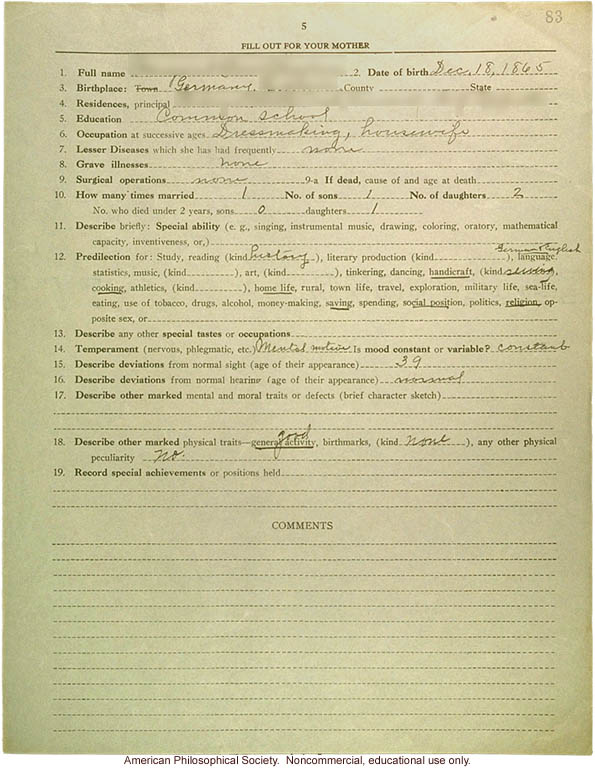 83
5
FILL OUT FOR YOUR MOTHER
1. Full name 2. Date of birth Dec. 18, 1865
3. Birthplace: Town Germany. County State
4. Residences, principal
5. Education Common school
6. Occupation at successive ages Dressmaking, housewife
7. Lesser Diseases which she has had frequently none
8. Grave illnesses none
9. Surgical operations none 9-a If dead, cause of and age at death
10. How many times married 1 No. of sons 1 No. of daughters 2
No. who died under 2 years, sons 0 daughters 1
11. Describe briefly: Special ability (e. g., singing, instrumental music, drawing, coloring, oratory, mathematical
capacity, inventiveness, or,)
German & English
12. Predilection for: Study, reading (kind history), literary production (kind ), language,
statistics, music, (kind ), art, (kind ), tinkering, dancing, handicraft, (kind sewing,
cooking, athletics, (kind ), home life, rural, town life, travel, exploration, military life, sea-life,
eating, use of tobacco, drugs, alcohol, money-making, saving, spending, social position, politics, religion, op-
posite sex, or
13. Describe any other special tastes or occupations
14. Temperament (nervous, phlegmatic, etc.) Mental motive Is mood constant or variable? constant
15. Describe deviations from normal sight (age of their appearance) 39
16. Describe deviations from normal hearing (age of their appearance) normal
17. Describe other marked mental and moral traits or defects (brief character sketch)
good
18. Describe other marked physical traits—general activity, birthmarks, (kind none ), any other physical
peculiarity no.
19. Record special achievements or positions held
COMMENTS
American Philosophical Society. Noncommercial, educational use only.